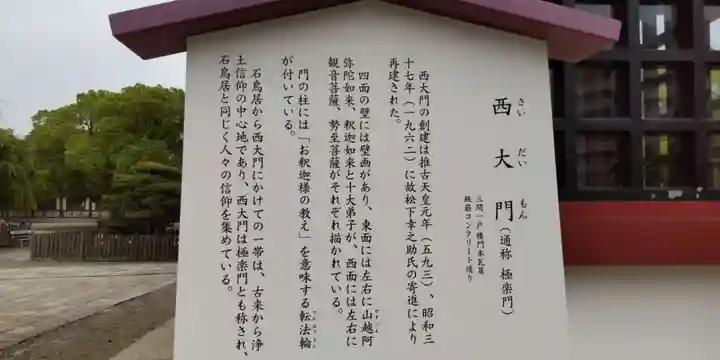 西大門(通称 極楽門)
さい だい もん
三間一戸楼門本瓦葺
鉄筋コンクリート造り
西大門の創建は推古天皇元年(五九三)、昭和三
十七年(一九六二)に故松下幸之助氏の寄進により
再建された。
四面の壁には壁画があり、東面には左右に山越阿
弥陀如来、釈迦如来と十大弟子が、西面には左右に
観音菩薩、勢至菩薩がそれぞれ描かれている。
門の柱には「お釈迦様の教え」を意味する転法輪
てんぽうりん
が付いている。
石鳥居から西大門にかけての一帯は、古来から浄
土信仰の中心地であり、西大門は極楽門とも称され、
石鳥居と同じく人々の信仰を集めている。